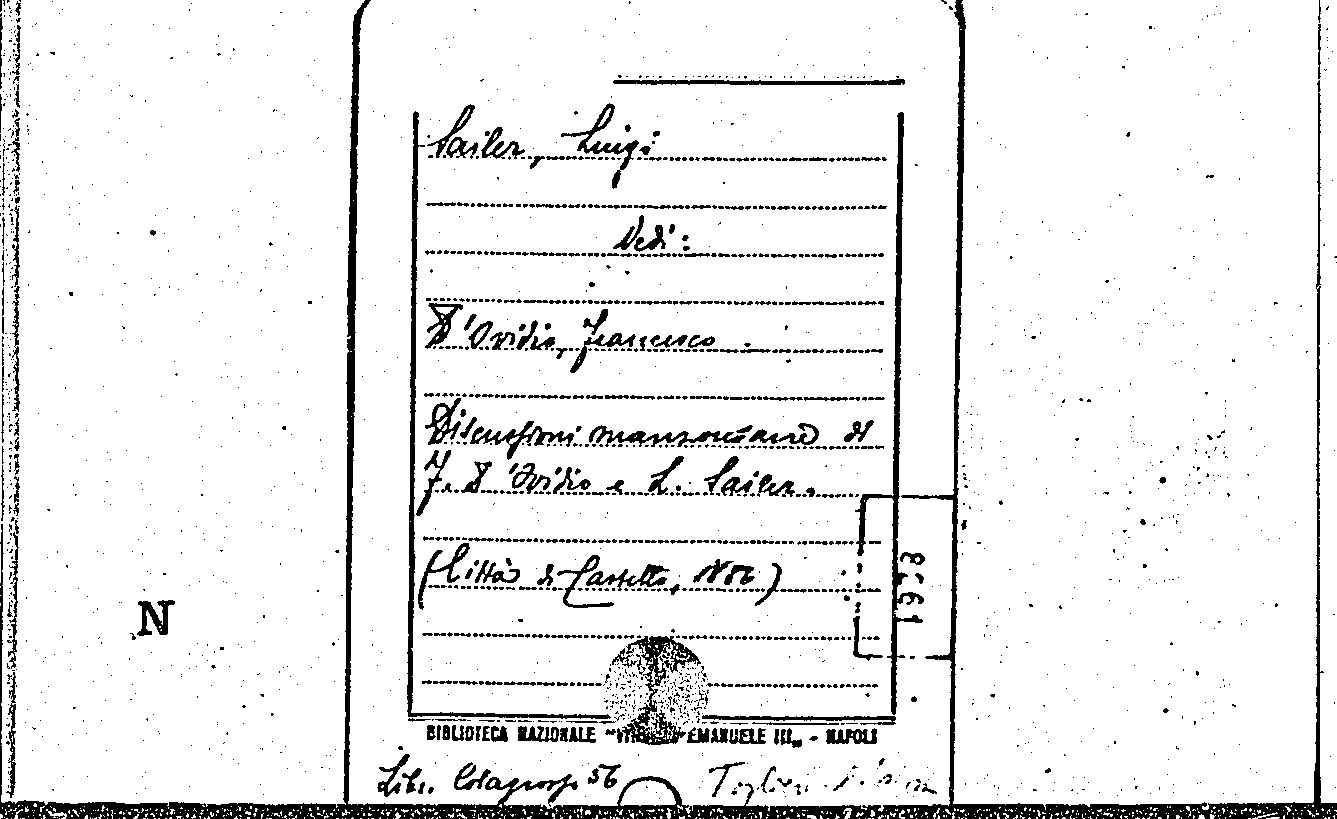 Sailer, Luigi
Vedi:
D'Ovidio, Francesco.
Discussioni manzoniane di
F. D'Ovidio e L. Sailer.
(Città di Castello, 1886)
1938
N
BIBLIOTECA NAZIONALE "VITTORIO EMANUELE III" - NAPOLI
Libr. Colagrosso 56